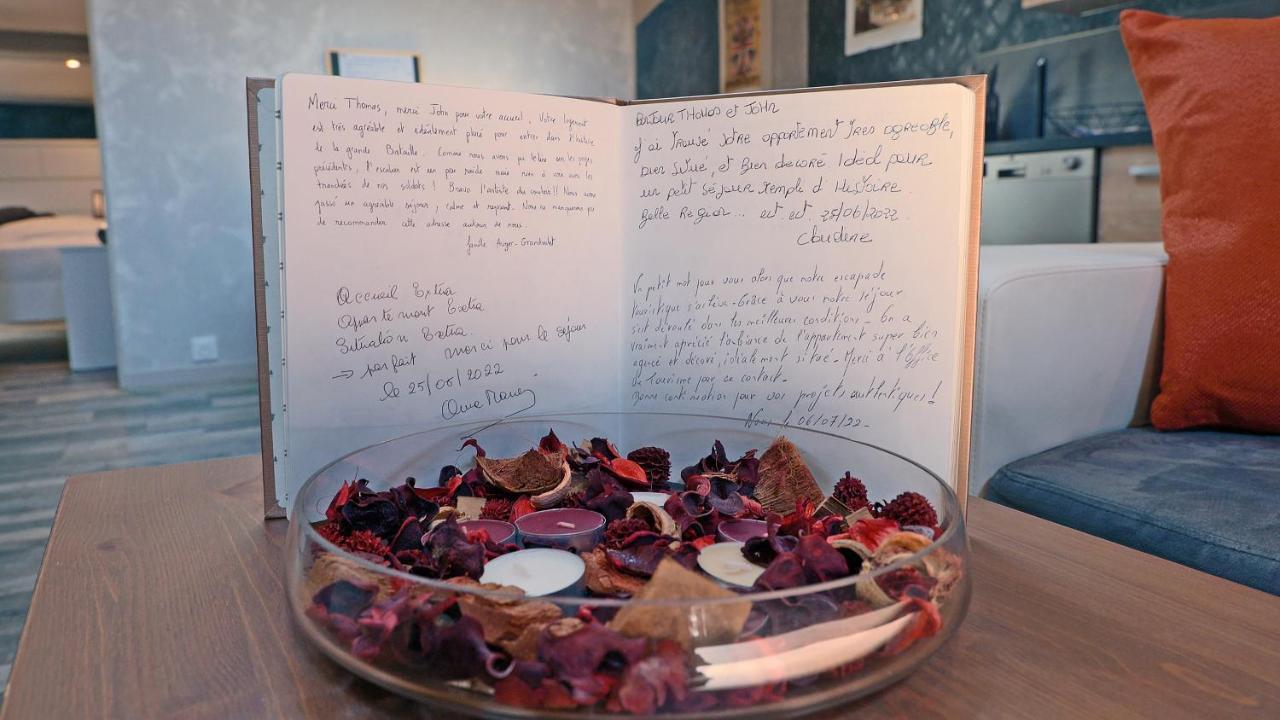 Merci Thomas, merci John pour votre accueil. Votre logement
est très agréable et idéalement placé pour entrer dans l'histoire
de la grande Bataille. Comme nous avons pu le lire sur les pages
précédentes, l'escalier est un peu raide mais rien à voir avec les
tranchées de nos soldats ! Bravo l'artiste du couloir !! Nous avons
passé un agréable séjour, calme et reposant. Nous ne manquerons pas
de recommander cette adresse autour de nous.
famille Auger-
Accueil Extra
Appartement Extra
Situation Extra.
→ parfait merci pour le séjour
le 25/06/2022
BONJOUR THOMAS ET JOHN
J'ai trouvé votre appartement très agréable,
bien situé, et bien décoré. Idéal pour
un petit séjour rempli d'Histoire.
Belle Région... est est. 25/06/2022.
Claudine
Un petit mot pour vous alors que notre escapade
touristique s'achève. Grâce à vous notre séjour
s'est déroulé dans les meilleures conditions. On a
vraiment apprécié l'ambiance de l'appartement super bien
agencé et décoré, idéalement situé. Merci à l'Office
de Tourisme pour ce contact.
Bonne continuation pour vos projets authentiques !
le 06/07/22.